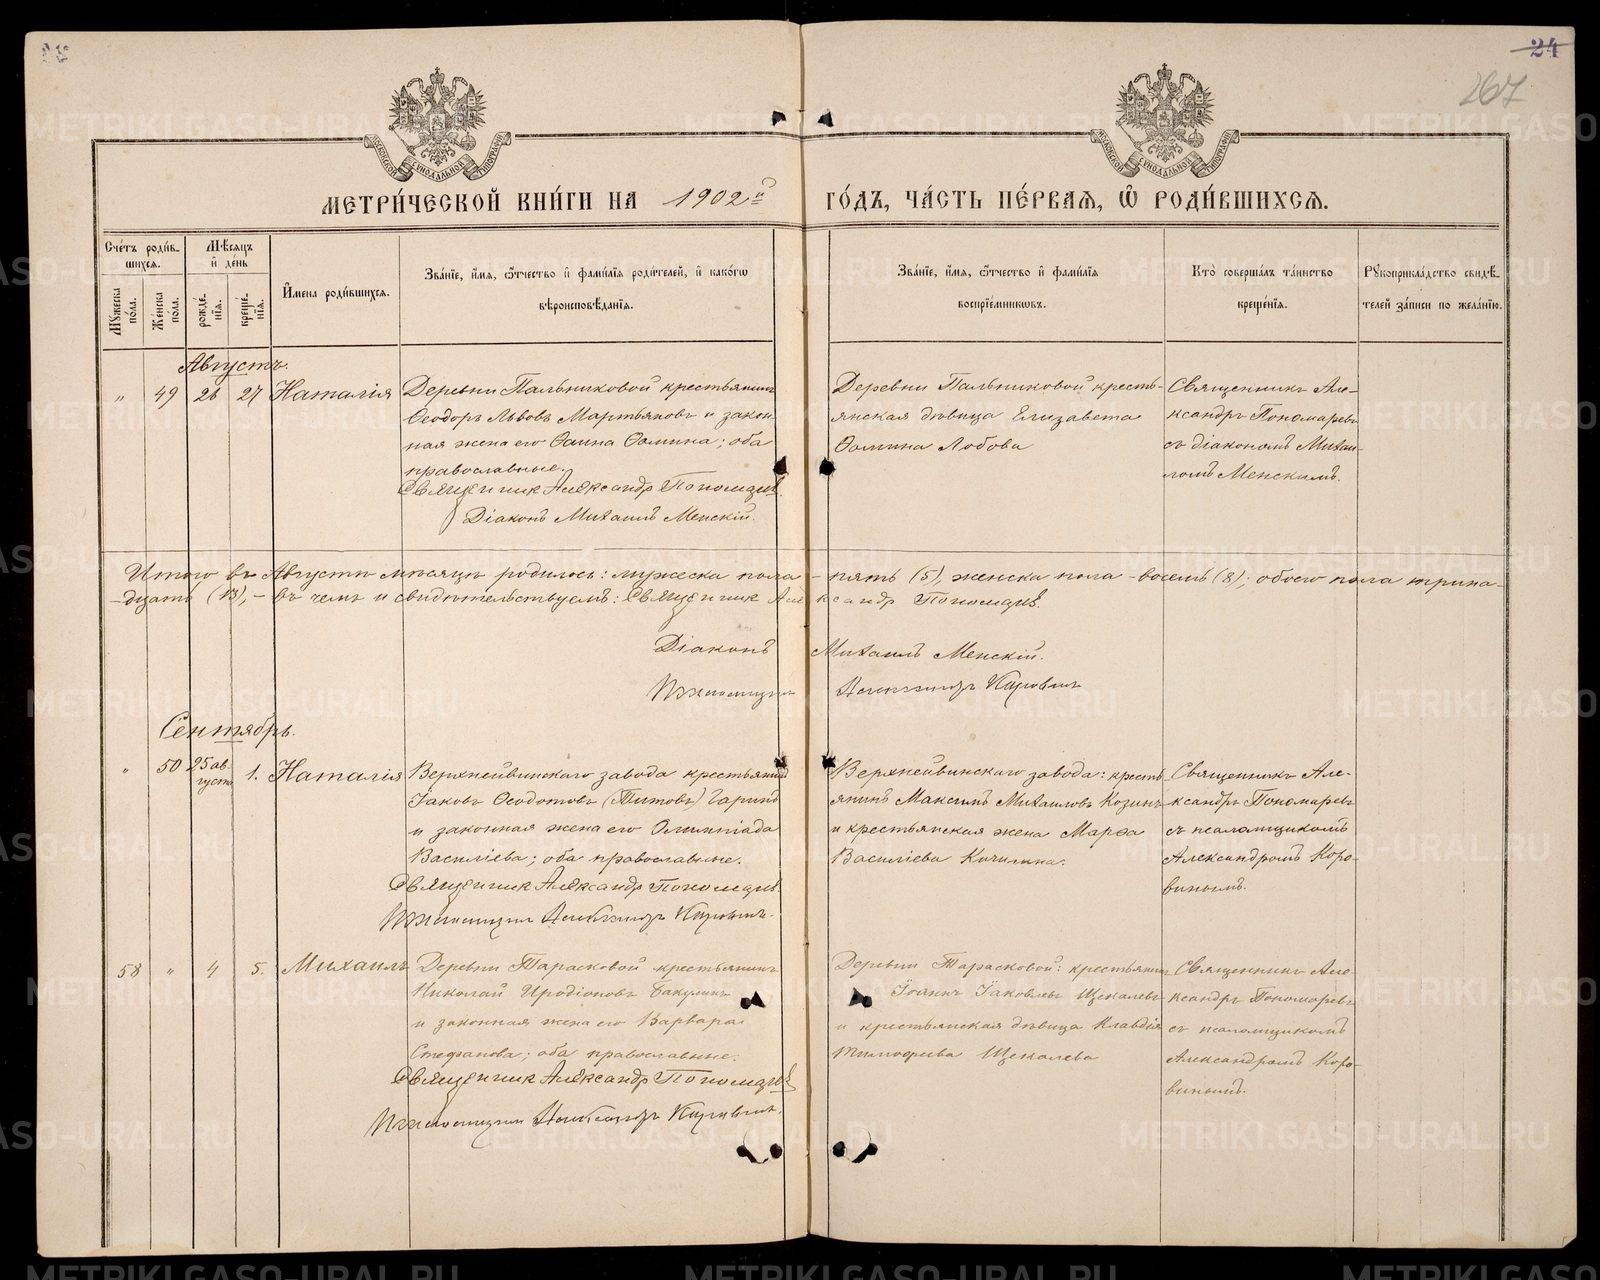 24
267
МЕТРИ́ЧЕСКОЙ КНИ́ГИ НА 1902й ГО́ДЪ, ЧА́СТЬ ПЕ́РВАЯ, Ѿ РОДИ́ВШИХСЯ.
Сче́тъ роди́в-
шихся.
Му́жеска по́ла.
Же́нска по́ла.
Мѣ́сяцъ и де́нь
рожде́-
нія.
креще́-
нія.
И́мена роди́вшихся.
Зва́ніе, и́мя, ѻ́тчество и фами́лія роди́телей, и како́гѡ
вѣроисповѣ́данія.
Зва́ніе, и́мя, ѻ́тчество и фами́лія
воспріе́мниковъ.
Кто̀ соверша́лъ та́инство
креще́нія.
Рукоприкла́дство свидѣ́-
телей за́писи по жела́нію.
Августъ.
" 49 26 27 Наталія
Деревни Пальниковой крестьянинъ
Ѳеодоръ Львовъ Мартьяновъ и закон-
ная жена его Ѳаина Ѳомина; оба
православные.
Священникъ Александръ Пономаревъ.
Діаконъ Михаилъ Менскій.
Деревни Пальниковой кресть-
янская дѣвица Елизавета
Ѳомина Лобова
Священникъ Але-
ксандръ Пономаревъ
съ діакономъ Михаи-
ломъ Менскимъ.
Итого въ Августѣ мѣсяцѣ родилось: мужеска пола – пять (5), женска пола – восемь (8); обоего пола трина-
дцать (13), – въ чемъ и свидѣтельствуемъ: Священникъ Александръ Пономаревъ.
Діаконъ Михаилъ Менскій.
Псаломщикъ Александръ Коровинъ
Сентябрь.
" 50 25 ав-
густа 1. Наталія
Верхнейвинскаго завода крестьянинъ
Іаковъ Ѳеодотовъ (Титовъ) Гаринъ
и законная жена его Олимпіада
Василіева; оба православные.
Священникъ Александръ Пономаревъ.
Псаломщикъ Александръ Коровинъ.
Верхнейвинскаго завода: кресть-
янинъ Максимъ Михаиловъ Козинъ
и крестьянская жена Марѳа
Василіева Кичигина.
Священникъ Але-
ксандръ Пономаревъ
съ псаломщикомъ
Александромъ Коро-
винымъ.
58 " 4 5. Михаилъ
Деревни Тарасковой крестьянинъ
Николай Иродіоновъ Бакулинъ
и законная жена его Варвара
Стефанова; оба православные.
Священникъ Александръ Пономаревъ
Псаломщикъ Александръ Коровинъ.
Деревни Тарасковой: крестьянинъ
Іоаннъ Іаковлевъ Щекалевъ
и крестьянская дѣвица Клавдія
Тимоѳеева Щекалева
Священникъ Але-
ксандръ Пономаревъ
съ псаломщикомъ
Александромъ Коро-
винымъ.
METRIKI.GASO-URAL.RU